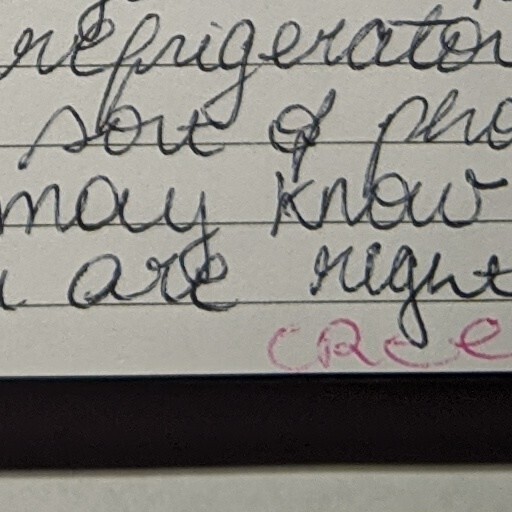 refrigerator
sort of pho
may know
are right